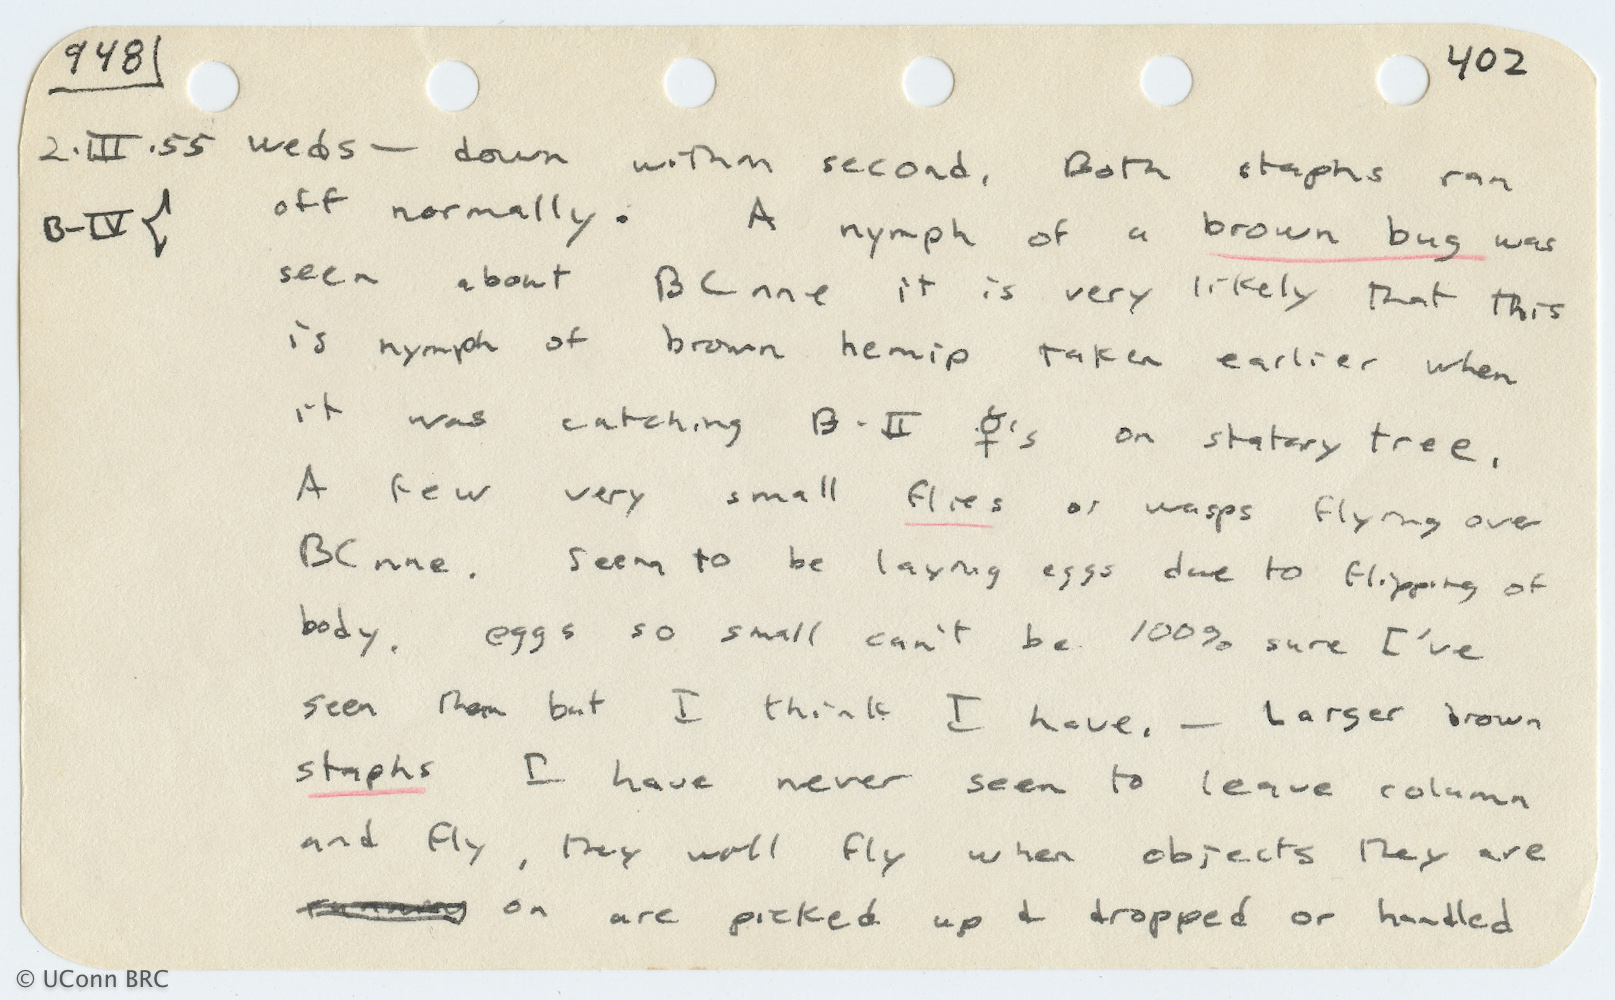 948 402
2.III.55 Weds — down within second. Both staphs ran
B-IV { off normally. A nymph of a brown bug was
seen about BCnne it is very likely that this
is nymph of brown hemip taken earlier when
it was catching B-II ☿'s on statary tree.
A few very small flies or wasps flying over
BCnne. Seem to be laying eggs due to flipping of
body. eggs so small can't be 100% sure I've
seen them but I think I have. — Larger brown
staphs I have never seen to leave column
and fly, they will fly when objects they are
on are picked up & dropped or handled
© UConn BRC